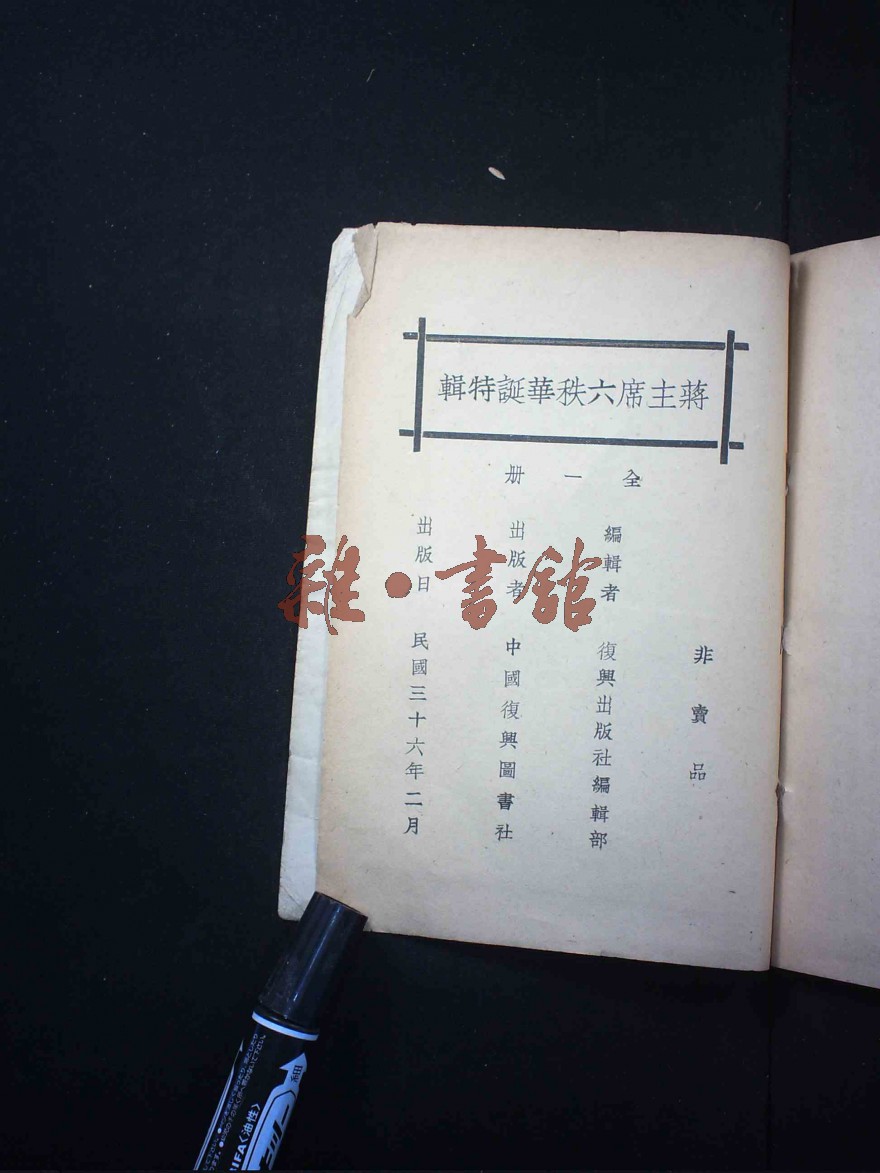 蔣主席六秩華誕特輯
全一册
非賣品
編輯者 復興出版社編輯部
出版者 中國復興圖書社
出版日 民國三十六年二月
雜·書館
細
〈油性〉